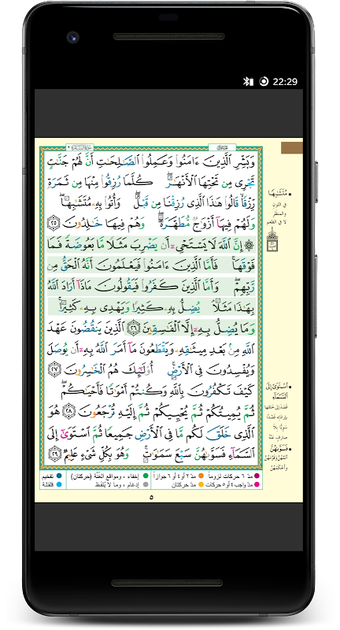 22:29
وَبَشِّرِ الَّذِينَ ءَامَنُوا وَعَمِلُوا الصَّٰلِحَٰتِ أَنَّ لَهُمْ جَنَّٰتٍ
تَجْرِى مِن تَحْتِهَا الْأَنْهَٰرُ كُلَّمَا رُزِقُوا مِنْهَا مِن ثَمَرَةٍ
رِّزْقًا قَالُوا هَٰذَا الَّذِى رُزِقْنَا مِن قَبْلُ وَأُتُوا بِهِ مُتَشَٰبِهًا
وَلَهُمْ فِيهَا أَزْوَٰجٌ مُّطَهَّرَةٌ وَهُمْ فِيهَا خَٰلِدُونَ ٢٥
إِنَّ اللَّهَ لَا يَسْتَحْىِ أَن يَضْرِبَ مَثَلًا مَّا بَعُوضَةً فَمَا
فَوْقَهَا فَأَمَّا الَّذِينَ ءَامَنُوا فَيَعْلَمُونَ أَنَّهُ الْحَقُّ مِن
رَّبِّهِمْ وَأَمَّا الَّذِينَ كَفَرُوا فَيَقُولُونَ مَاذَا أَرَادَ اللَّهُ
بِهَٰذَا مَثَلًا يُضِلُّ بِهِ كَثِيرًا وَيَهْدِى بِهِ كَثِيرًا
وَمَا يُضِلُّ بِهِ إِلَّا الْفَٰسِقِينَ ٢٦ الَّذِينَ يَنقُضُونَ عَهْدَ
اللَّهِ مِن بَعْدِ مِيثَٰقِهِ وَيَقْطَعُونَ مَا أَمَرَ اللَّهُ بِهِ أَن يُوصَلَ
وَيُفْسِدُونَ فِى الْأَرْضِ أُولَٰئِكَ هُمُ الْخَٰسِرُونَ ٢٧
كَيْفَ تَكْفُرُونَ بِاللَّهِ وَكُنتُمْ أَمْوَٰتًا فَأَحْيَٰكُمْ
ثُمَّ يُمِيتُكُمْ ثُمَّ يُحْيِيكُمْ ثُمَّ إِلَيْهِ تُرْجَعُونَ ٢٨ هُوَ
الَّذِى خَلَقَ لَكُم مَّا فِى الْأَرْضِ جَمِيعًا ثُمَّ اسْتَوَىٰ إِلَى
السَّمَاءِ فَسَوَّىٰهُنَّ سَبْعَ سَمَٰوَٰتٍ وَهُوَ بِكُلِّ شَىْءٍ عَلِيمٌ ٢٩
مُتَشَٰبِهًا
فَسَوَّىٰهُنَّ
مدّ ٦ حركات لزوماً مدّ ٢ أو ٤ أو ٦ جوازاً إخفاء، ومواقع الغنّة (حركتان) تفخيم
مدّ حركتان إدغام، وما لا يُلفظ قلقلة
٥